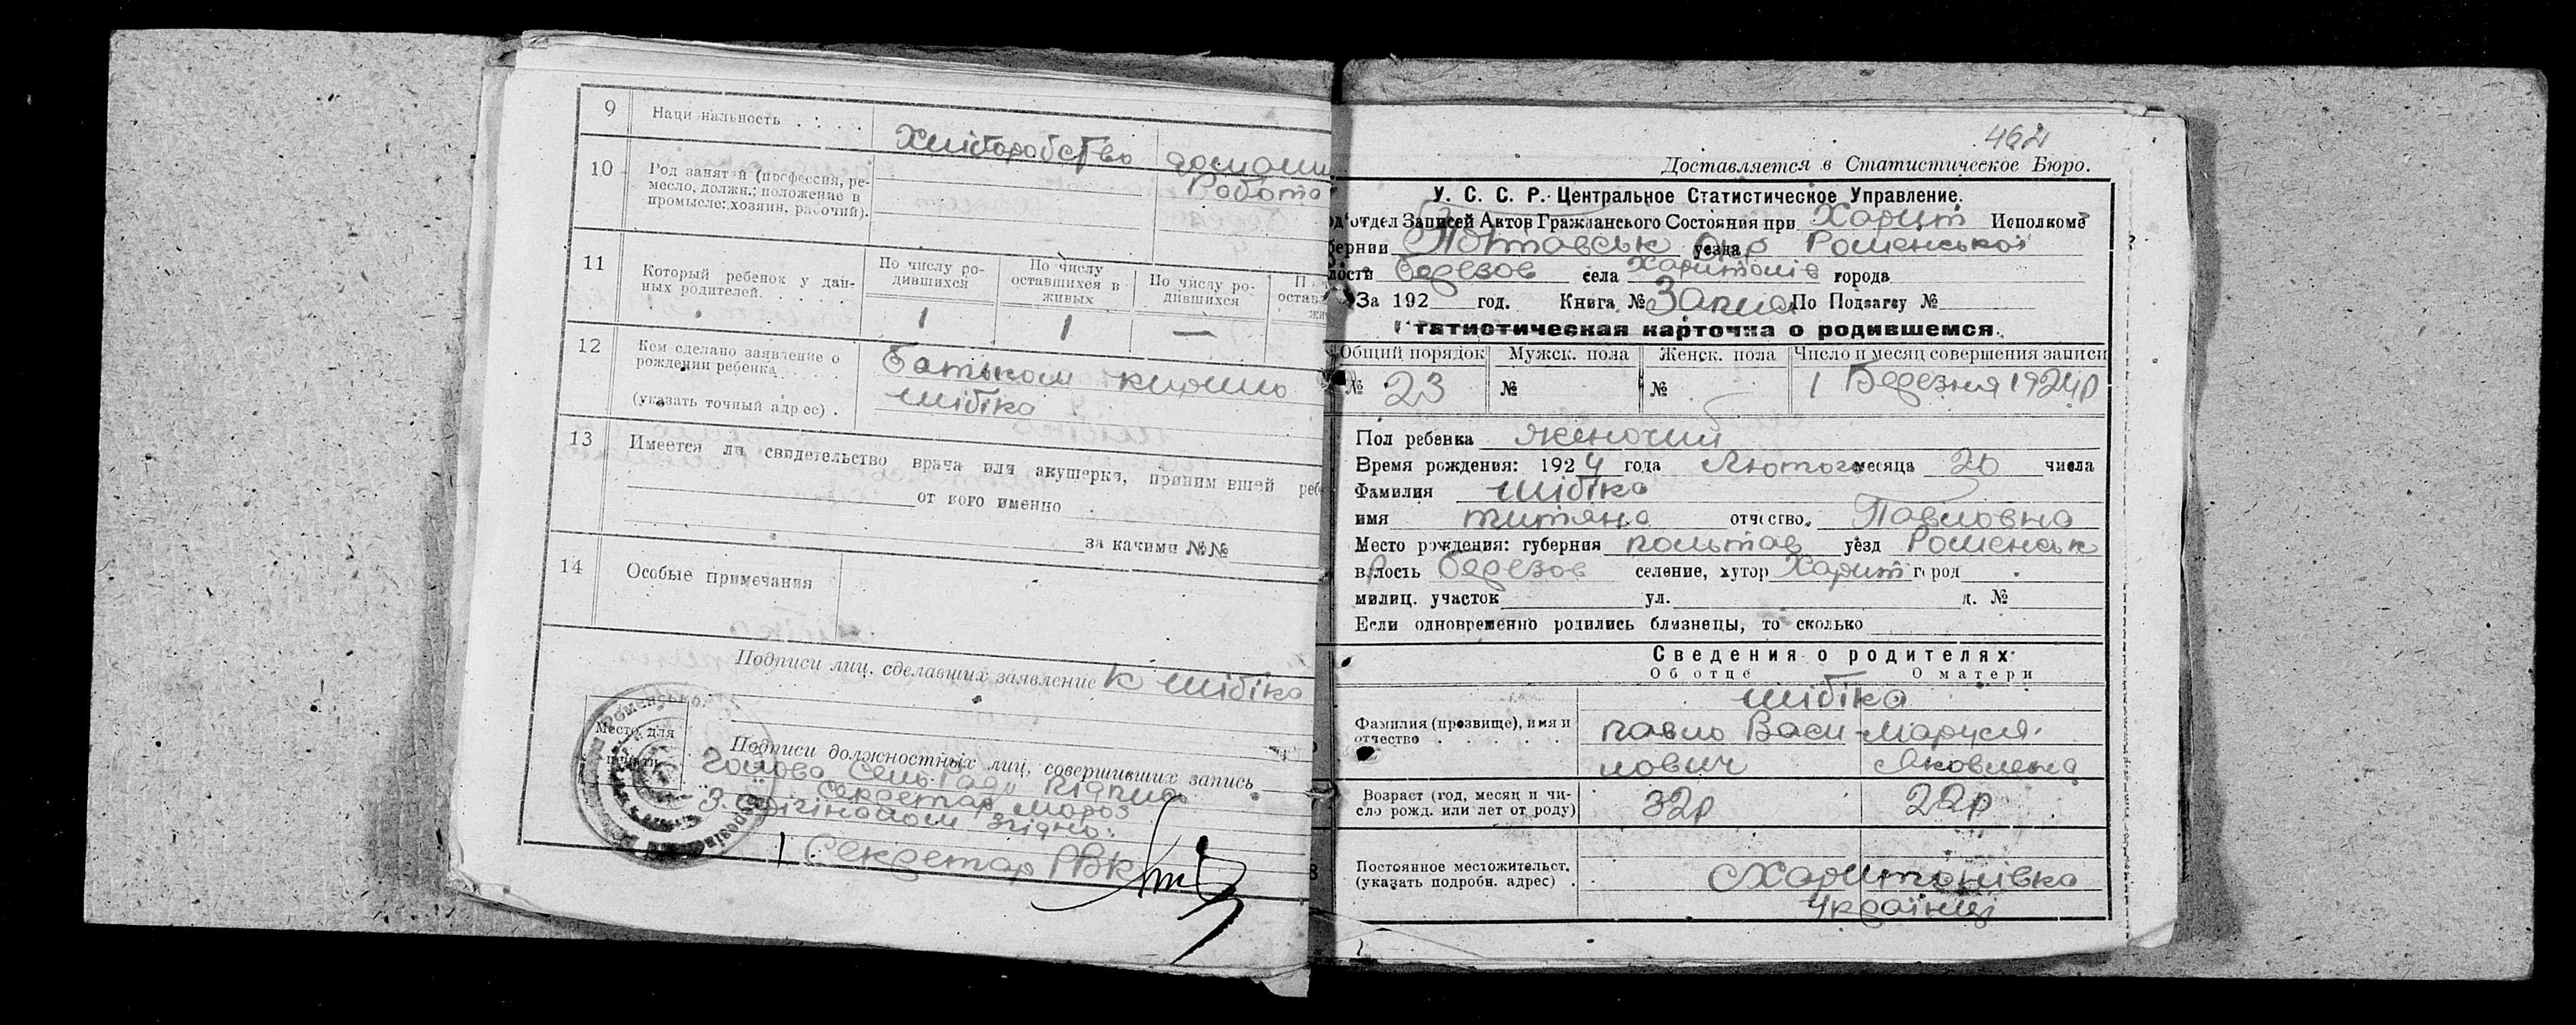 9 Национальность . . . .
Хліборобство
10 Род занятий (профессия, ре-
месло, должн.; положение в
промысле: хозяин, рабочий).
Робота
11 Который ребенок у дан-
ных родителей. . . . .
По числу ро-
дившихся
По числу
оставшихся в
живых
По числу ро-
дившихся
1 1 —
12 Кем сделано заявление о
рождении ребенка
(указать точный адрес) .
Батьком
Шібіко
13 Имеется ли свидетельство врача или акушерки, принимавшей
от кого именно
за какими №№
14 Особые примечания
Подписи лиц, сделавших заявление К Шібіко
Место для
печати
Подписи должностных лиц, совершивших запись
Голова Сельради Підпись
Секретар Мороз
З оригіналом згідно:
Секретар РВК
462
Доставляется в Статистическое Бюро.
У. С. С. Р. Центральное Статистическое Управление.
отдел Записей Актов Гражданского Состояния при Харит Исполкоме
Полтавськ уезда Окр Роменської
Березов села Харитонів города
За 192 год. Книга № Запис По Подзагсу №
Статистическая карточка о родившемся.
Общий порядок Мужск. пола Женск. пола Число и месяц совершения записи
№ 23 № № 1 Березня 1924р
Пол ребенка жіночий
Время рождения: 1924 года Лютого месяца 20 числа
Фамилия Шібіко
имя Титяна отчество. Павловна
Место рождения: губерния Полтав уезд Роменськ
волость Березов селение, хутор Харит город
милиц. участок ул. д. №
Если одновременно родились близнецы, то сколько
Сведения о родителях:
Об отце О матери
Шібіко
Фамилия (прозвище), имя и
отчество . . . . . .
Павло Васи- Маруся
лович Яковлена
Возраст (год, месяц и чи-
сло рожд. или лет от роду)
32р 22р
8 Постоянное местожительст.
(указать подробн. адрес) .
с Харитонівка
Українці